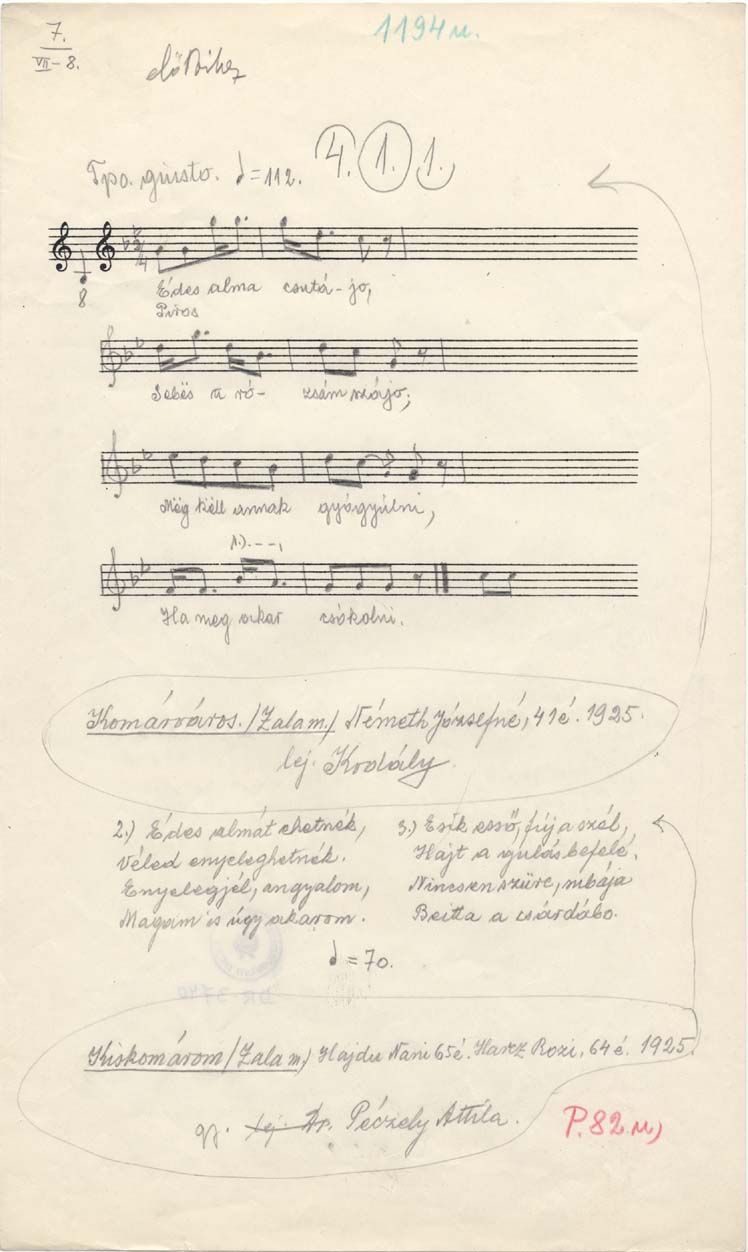 7.
VII-8.
1194u.
Tpo. giusto. ♩=112. 4. 1. 1.
8
Édes alma csutá-jo,
Piros
Sebës a ró- zsám szájo;
Még këll annak gyógyúlni,
1.)
Ha meg akar csókolni.
Komárváros. /Zala m./ Németh Józsefné, 41é. 1925.
lej. Kodály.
2.) Édes almát ehetnék,
Véled enyeleghetnék.
Enyelegjél, angyalom,
Magam is úgy akarom.
3.) Esik esső, fúj a szél,
Hajt a gulás befelé.
Nincsen szüre, mbája
Beitta a csárdábo.
♩=70.
Kiskomárom /Zala m./ Hajdu Nani 65é. Harcz Rozi, 64é. 1925.
gy. lej. Dr. Péczely Attila.
P. 82 u)